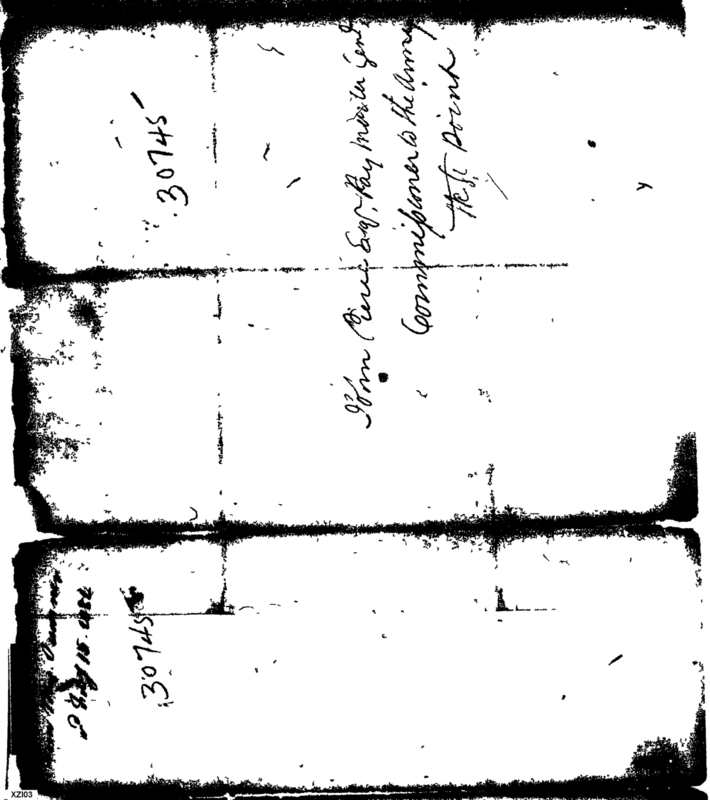 30745
John Pierce Esqr. Pay Master Genl
Commissioner to the Army
West Point
15
30745
XZI03